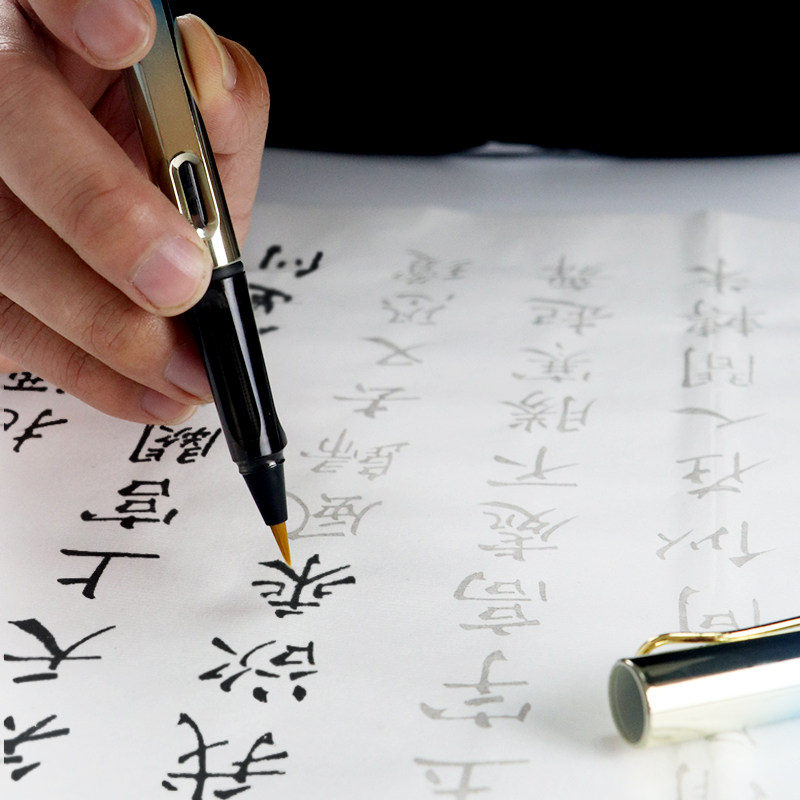 天上宮闕
我欲乘風歸去又恐瓊
玉宇高處不勝寒起舞
何似在人間轉朱